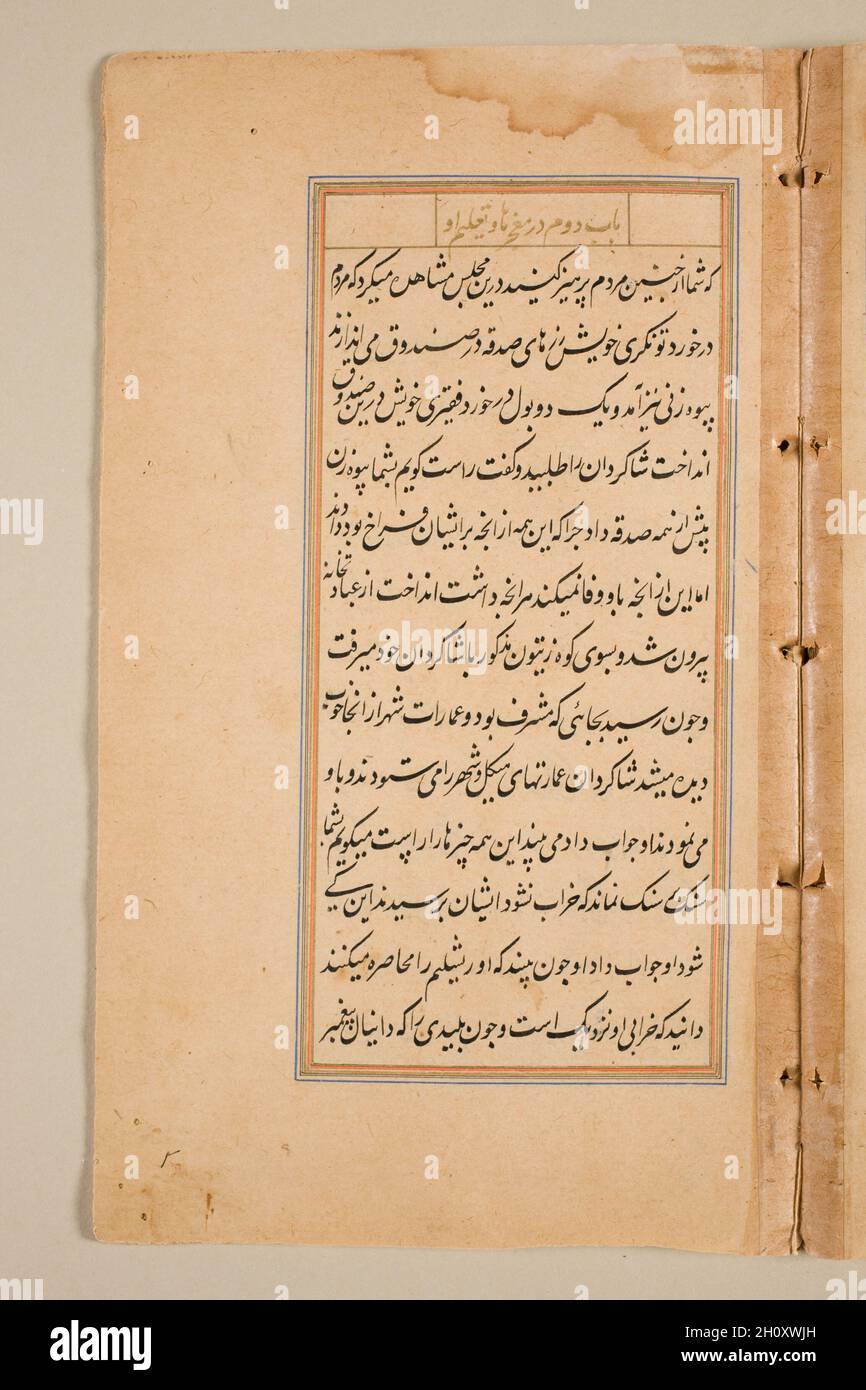 باب دوم در معجزها و تعلیم او
که شما از چنین مردم پرهیز کنید درین مجلس مشاهده میکرد که مردم
در خورد تونکری خویش زرهای صدقه در صندوق می اندازند
بیوه زنی نیز آمد و یک دو پول در خورد فقیری خویش درین صندوق
انداخت شاکردان را طلبید و کفت راست کویم بشما بیوه زن
بیش از همه صدقه داد چرا که این همه از انچه برایشان فراخ بود دادند
اما این از انچه باو وفا نمیکند هر انچه داشت انداخت از عبادتخانه
بیرون شد و بسوی کوه زیتون مذکور با شاکردان خود میرفت
و چون رسید بجائی که مشرف بود و عمارات شهر از انجا خوب
دیده میشد شاکردان عمارتهای هیکل و شهر را می ستودند و باو
می نمودند او جواب داد می بیند این همه چیزها را راست میکویم بشما
سنکی بر سنک نماند که خراب نشود ایشان پرسیدند این کی
شود او جواب داد او چون بیند که اورشلیم را محاصره میکنند
دانید که خرابی او نزدیک است و چون پلیدی را که دانیال پیغمبر
۲
alamy
Image ID: 2H0XWJH
www.alamy.com